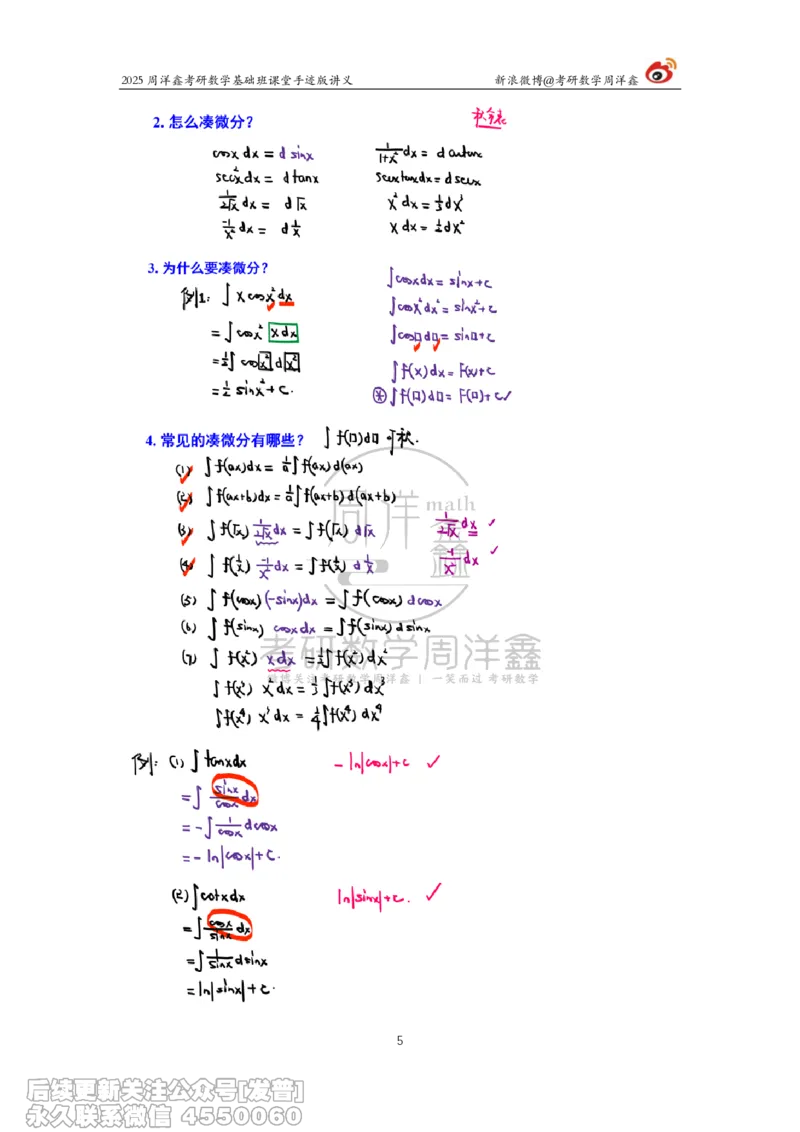 2025 周洋鑫考研数学基础班课堂手迹版讲义 新浪微博@考研数学周洋鑫
2. 怎么凑微分?
积分表
cosx dx = d sinx
1/(1+x²) dx = d arctanx
sec²x dx = d tanx
secxtanx dx = d secx
1/(2√x) dx = d√x
x² dx = 1/3 dx³
-1/x² dx = d 1/x
x dx = 1/2 dx²
3. 为什么要凑微分?
例1: ∫ x cosx² dx
= ∫ cosx² x dx
= 1/2 ∫ cos x² d x²
= 1/2 sinx² + C.
∫cosx dx = sinx + C
∫cosx² dx² = sinx² + C
∫cos□ d□ = sin□ + C
∫f(x)dx = F(x)+C
∫f(□)d□ = F(□)+C ✓
4. 常见的凑微分有哪些? ∫ f(□)d□ 可积.
(1) ∫ f(ax)dx = 1/a ∫ f(ax) d(ax)
(2) ∫ f(ax+b)dx = 1/a ∫ f(ax+b) d(ax+b)
(3) ∫ f(√x) 1/(2√x) dx = ∫ f(√x) d√x
1/(2√x) dx ✓
(4) ∫ f(1/x) -1/x² dx = ∫ f(1/x) d 1/x
-1/x² dx ✓
(5) ∫ f(cosx) (-sinx)dx = ∫ f(cosx) dcosx
(6) ∫ f(sinx) cosxdx = ∫f(sinx) dsinx
(7) ∫ f(x²) xdx = 1/2 ∫f(x²) dx²
∫ f(x³) x² dx = 1/3 ∫f(x³) dx³
∫f(x⁴) x³ dx = 1/4 ∫f(x⁴) dx⁴
周洋鑫 math
考研数学周洋鑫
微博关注考研数学周洋鑫 | 一笑而过 考研数学
例: (1) ∫ tanxdx
-ln|cosx|+C ✓
= ∫ sinx/cosx dx
= -∫ 1/cosx dcosx
= -ln|cosx|+C.
(2) ∫cotxdx
ln|sinx|+C. ✓
= ∫ cosx/sinx dx
= ∫ 1/sinx dsinx
= ln|sinx|+C.
5
后续更新关注公众号[发普]
永久联系微信 4550060